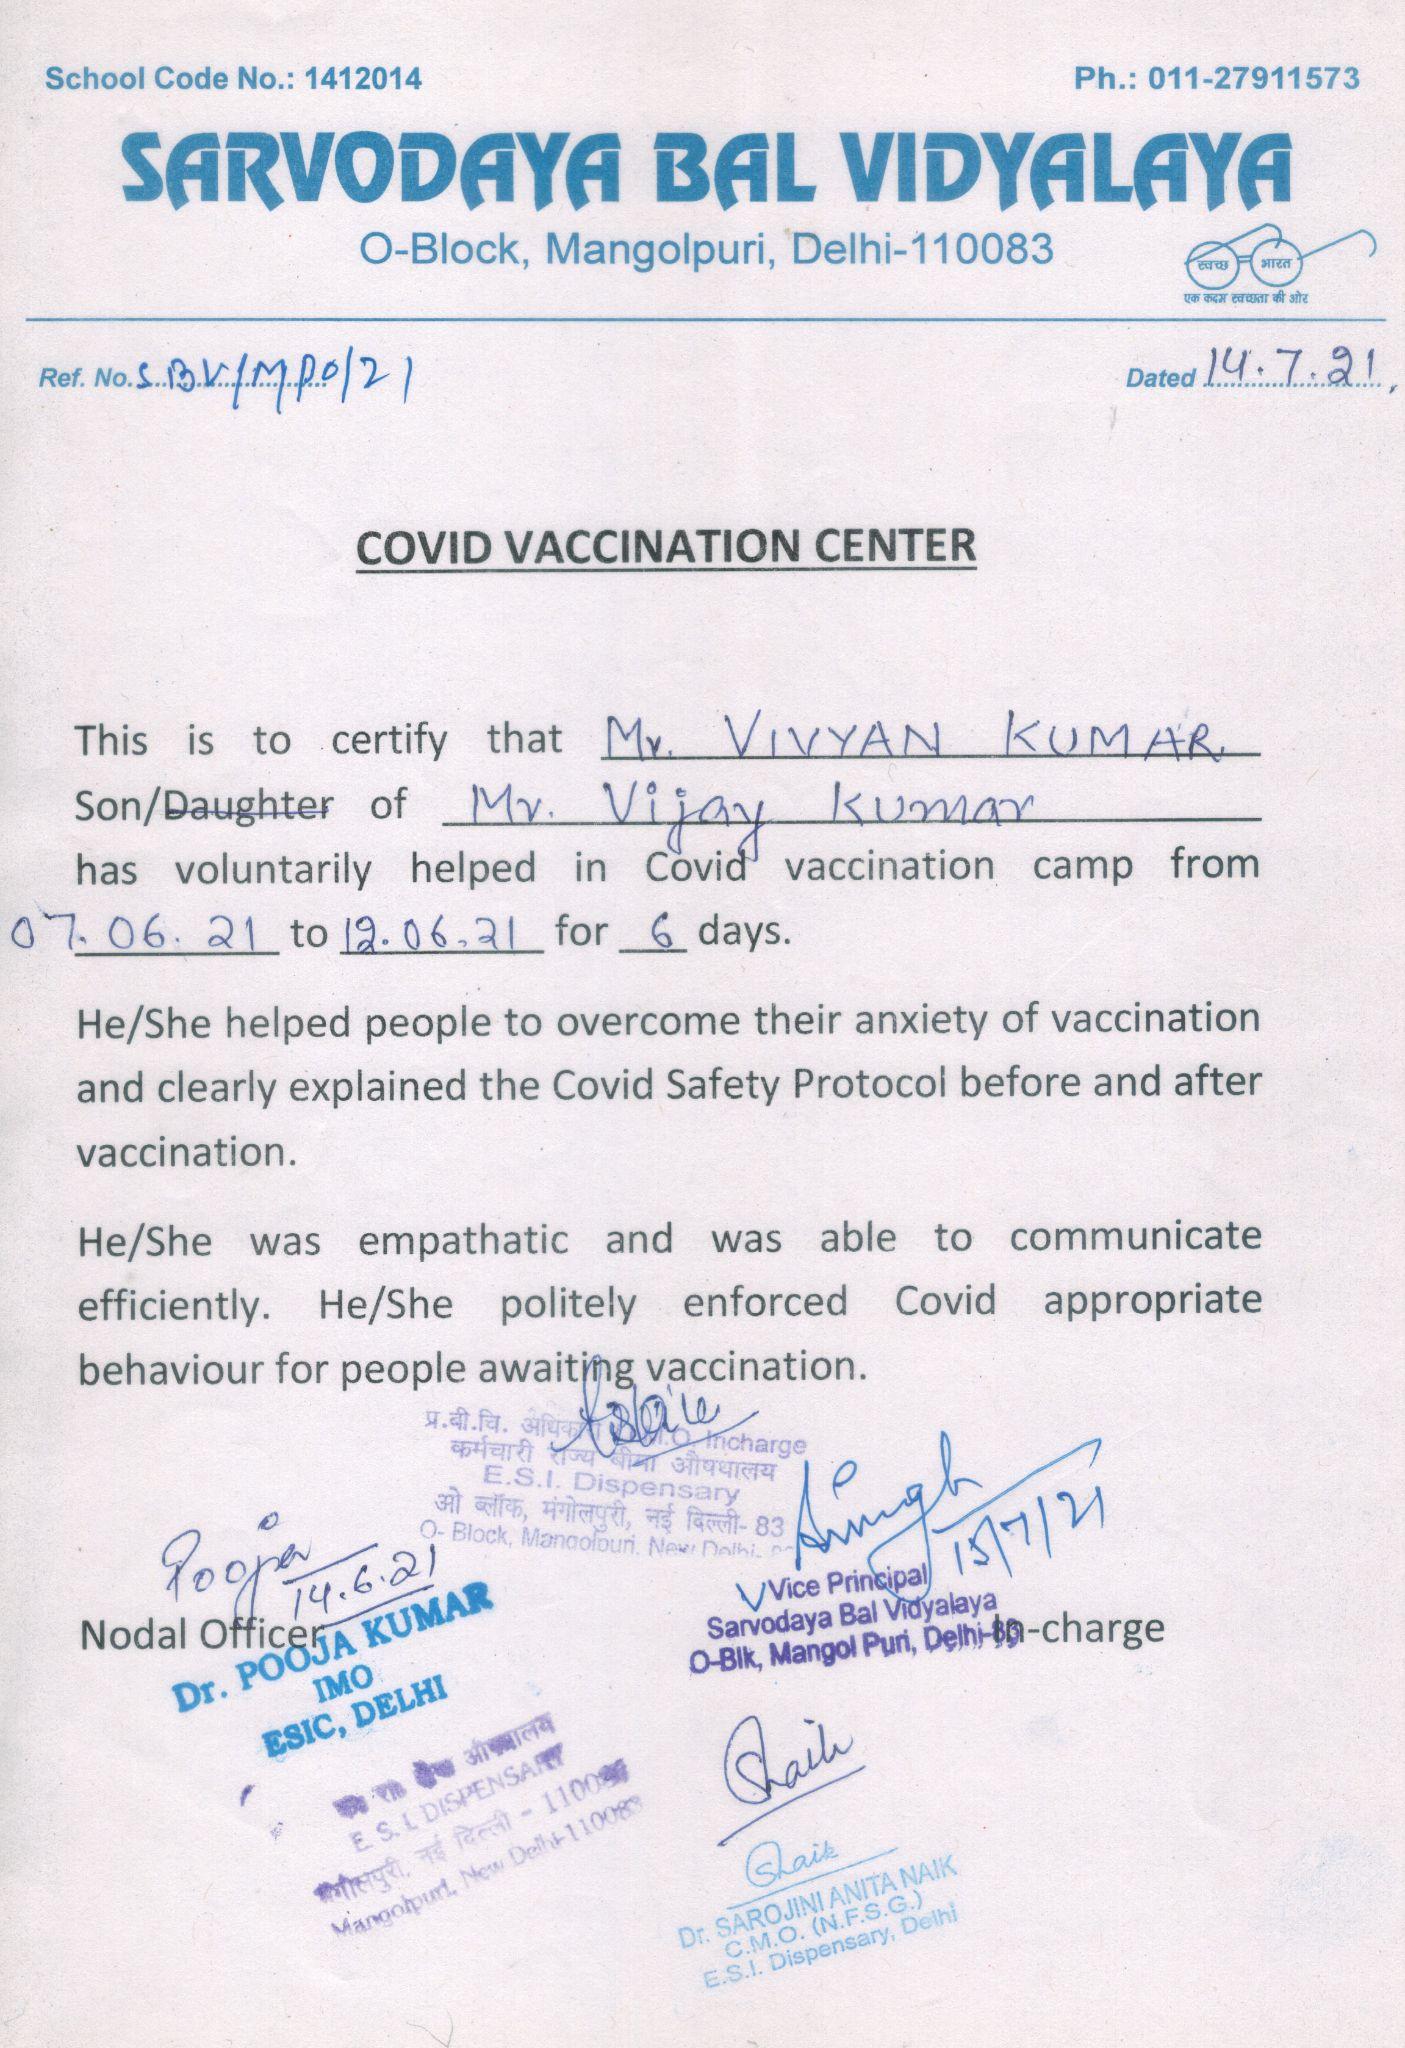 School Code No.: 1412014
Ph.: 011-27911573
SARVODAYA BAL VIDYALAYA
O-Block, Mangolpuri, Delhi-110083
स्वच्छ भारत
एक कदम स्वच्छता की ओर
Ref. No. SBV/MPO/21
Dated 14.7.21
COVID VACCINATION CENTER
This is to certify that Mr. VIVYAN KUMAR
Son/Daughter of Mr. Vijay Kumar
has voluntarily helped in Covid vaccination camp from
07.06.21 to 12.06.21 for 6 days.
He/She helped people to overcome their anxiety of vaccination
and clearly explained the Covid Safety Protocol before and after
vaccination.
He/She was empathatic and was able to communicate
efficiently. He/She politely enforced Covid appropriate
behaviour for people awaiting vaccination.
प्र.बी.चि. Incharge
कर्मचारी राज्य बीमा औषधालय
E.S.I. Dispensary
ओ ब्लॉक, मंगोलपुरी, नई दिल्ली- 83
O- Block, Mangolpuri, New Delhi-
Pooja
14.6.21
Singh
15/7/21
Nodal Officer
In-charge
Dr. POOJA KUMAR
IMO
ESIC, DELHI
Vice Principal
Sarvodaya Bal Vidyalaya
O-Blk, Mangol Puri, Delhi-83
औषधालय
E S. I. DISPENSARY
मंगोलपुरी, नई दिल्ली - 110083
Mangolpuri, New Delhi-110083
Dr. SAROJINI ANITA NAIK
C.M.O. (N.F.S.G.)
E.S.I. Dispensary, Delhi